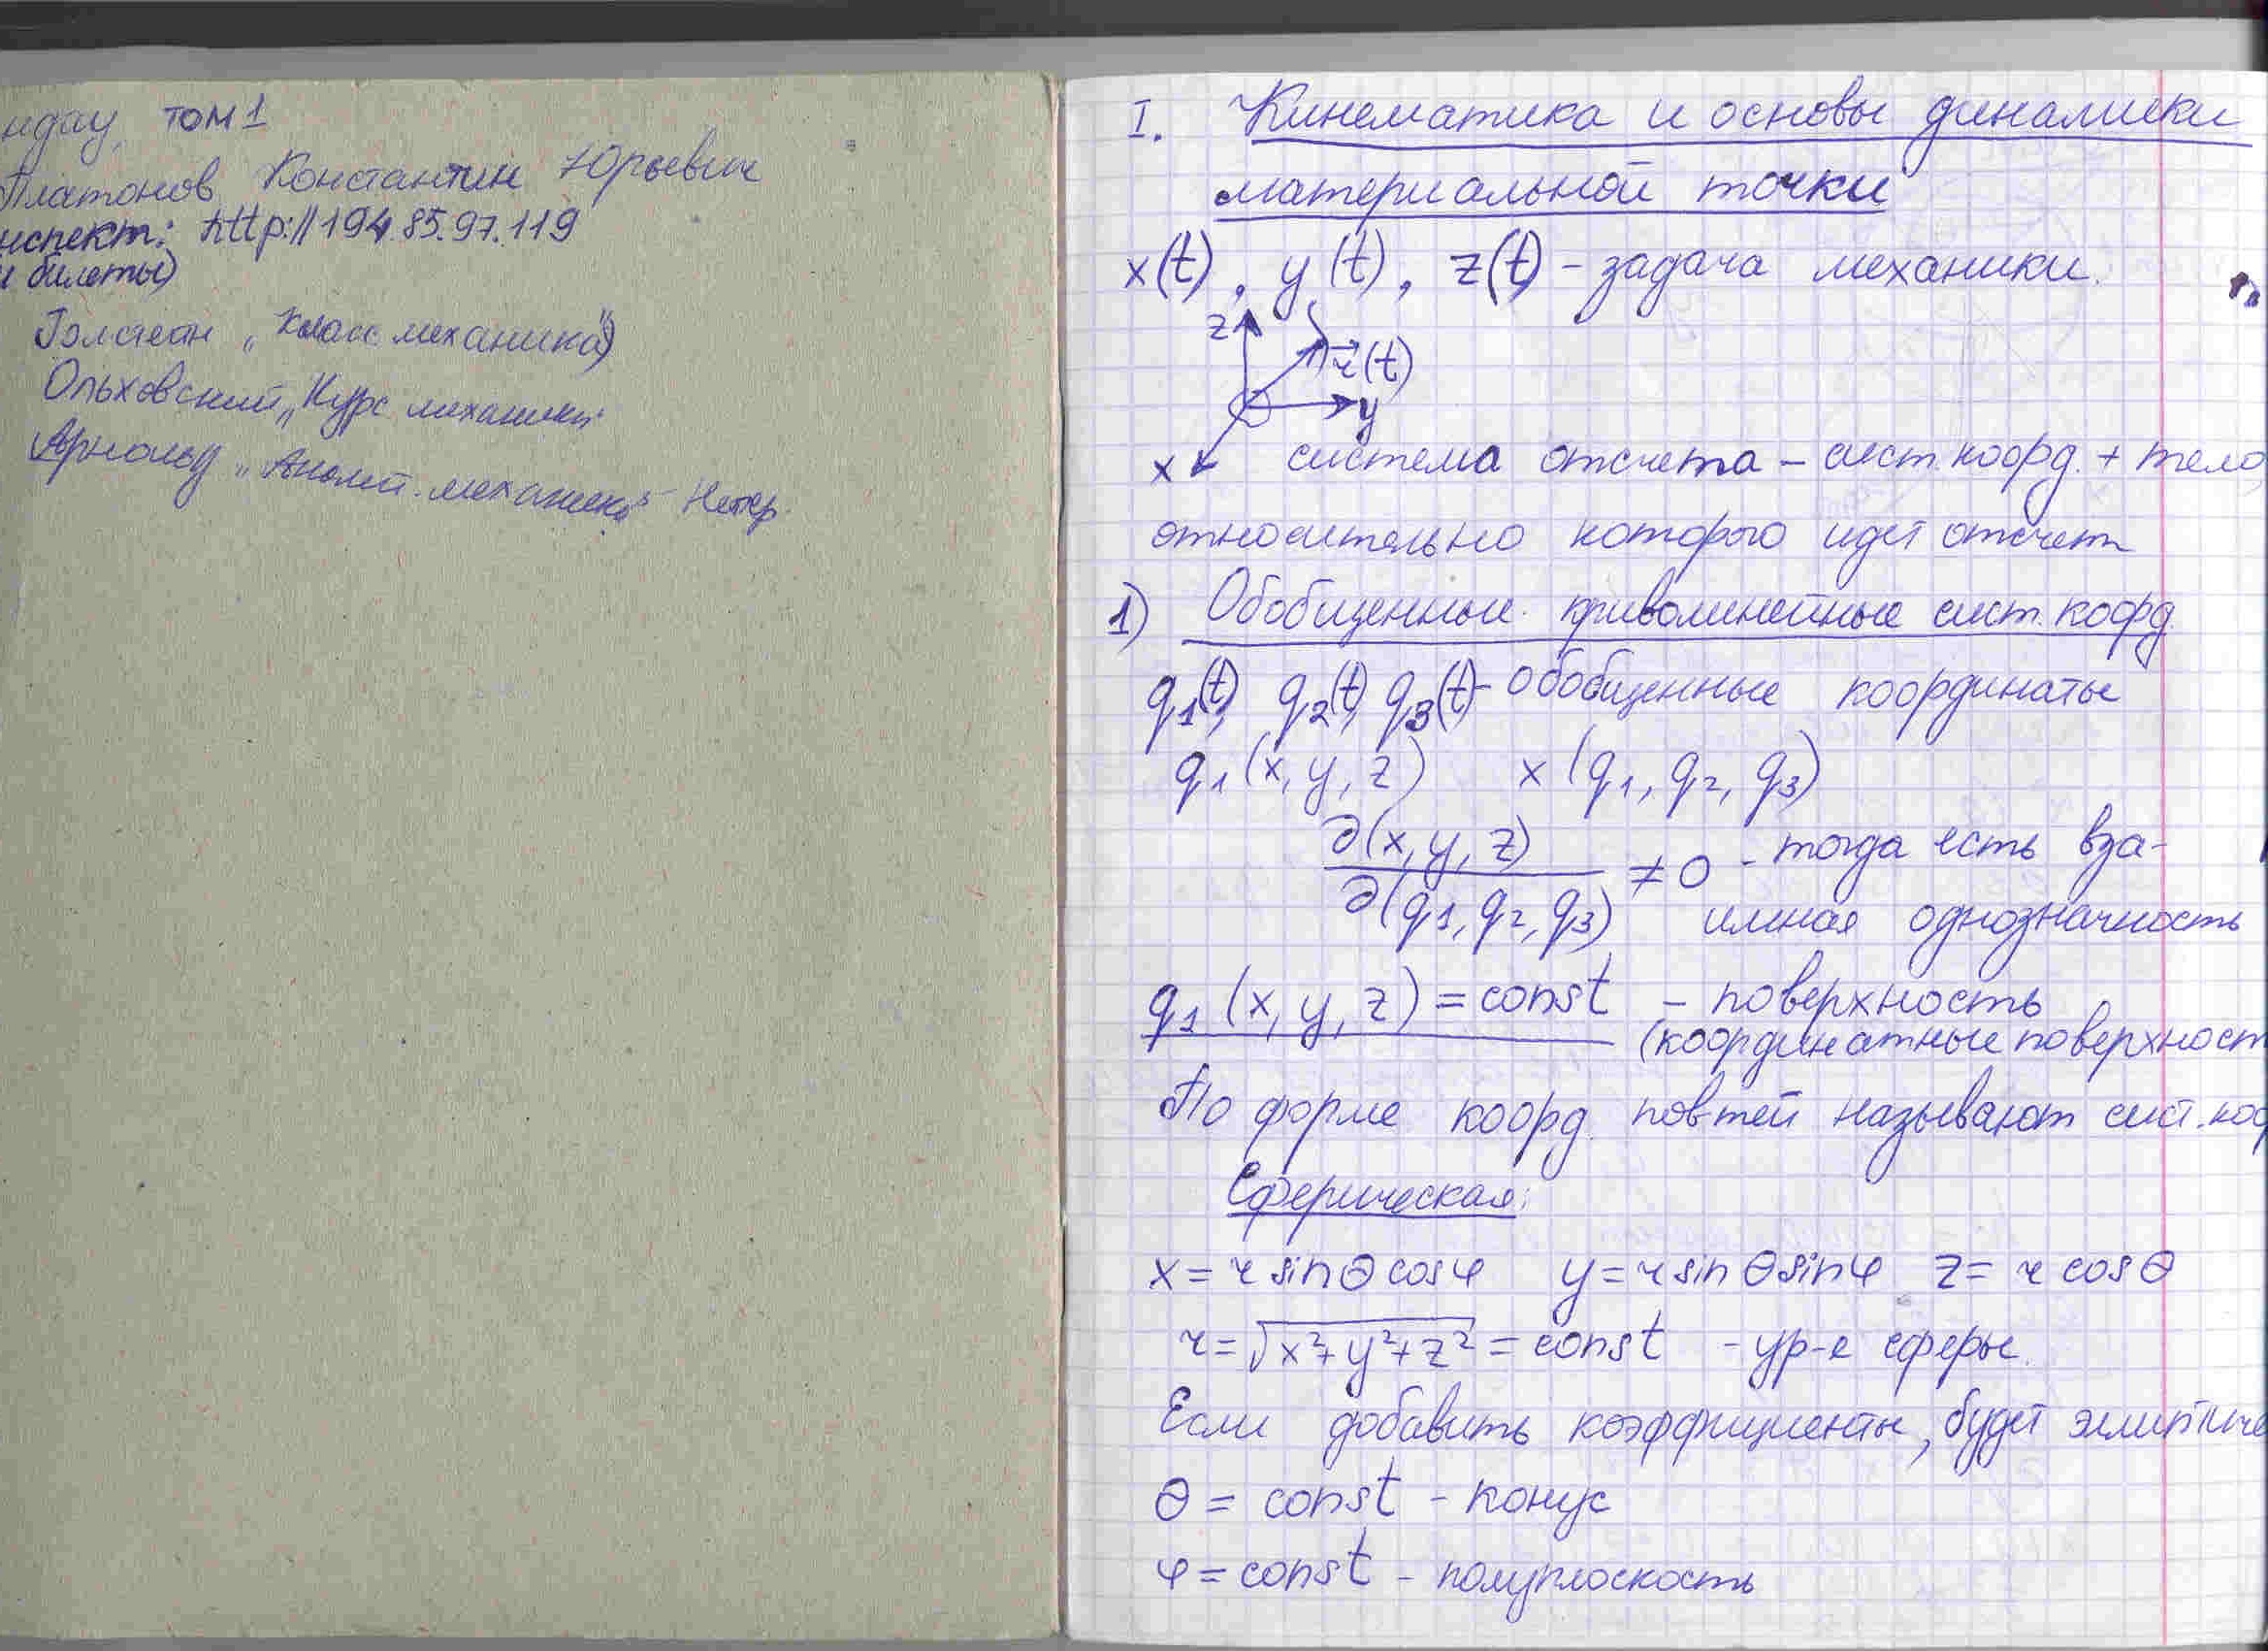 ндау, том 1
Платонов Константин Юрьевич
нспект: http://194.85.97.119
и билеты)
"Класс. механика")
Ольховский "Курс механики"
Арнольд "Аналит. механика"
I. Кинематика и основы динамики
материальной точки
x(t), y(t), z(t) – задача механики.
z
r⃗(t)
y
x
система отсчета – сист. коорд. + тело,
относительно которого идет отсчет
1) Обобщенные криволинейные сист. коорд.
q₁(t), q₂(t), q₃(t) – обобщенные координаты
q₁(x, y, z) x(q₁, q₂, q₃)
∂(x, y, z)/∂(q₁, q₂, q₃) ≠ 0 – тогда есть вза-
имная однозначность
q₁(x, y, z) = const – поверхность
(координатные поверхност
По форме коорд. повтей называют сист. коор
Сферическая:
x = r sinθ cosφ y = r sinθ sinφ z = r cosθ
r = √(x² + y² + z²) = const – ур-е сферы.
Если добавить коэффициенты, будет элиптиче
θ = const – конус
φ = const – полуплоскость